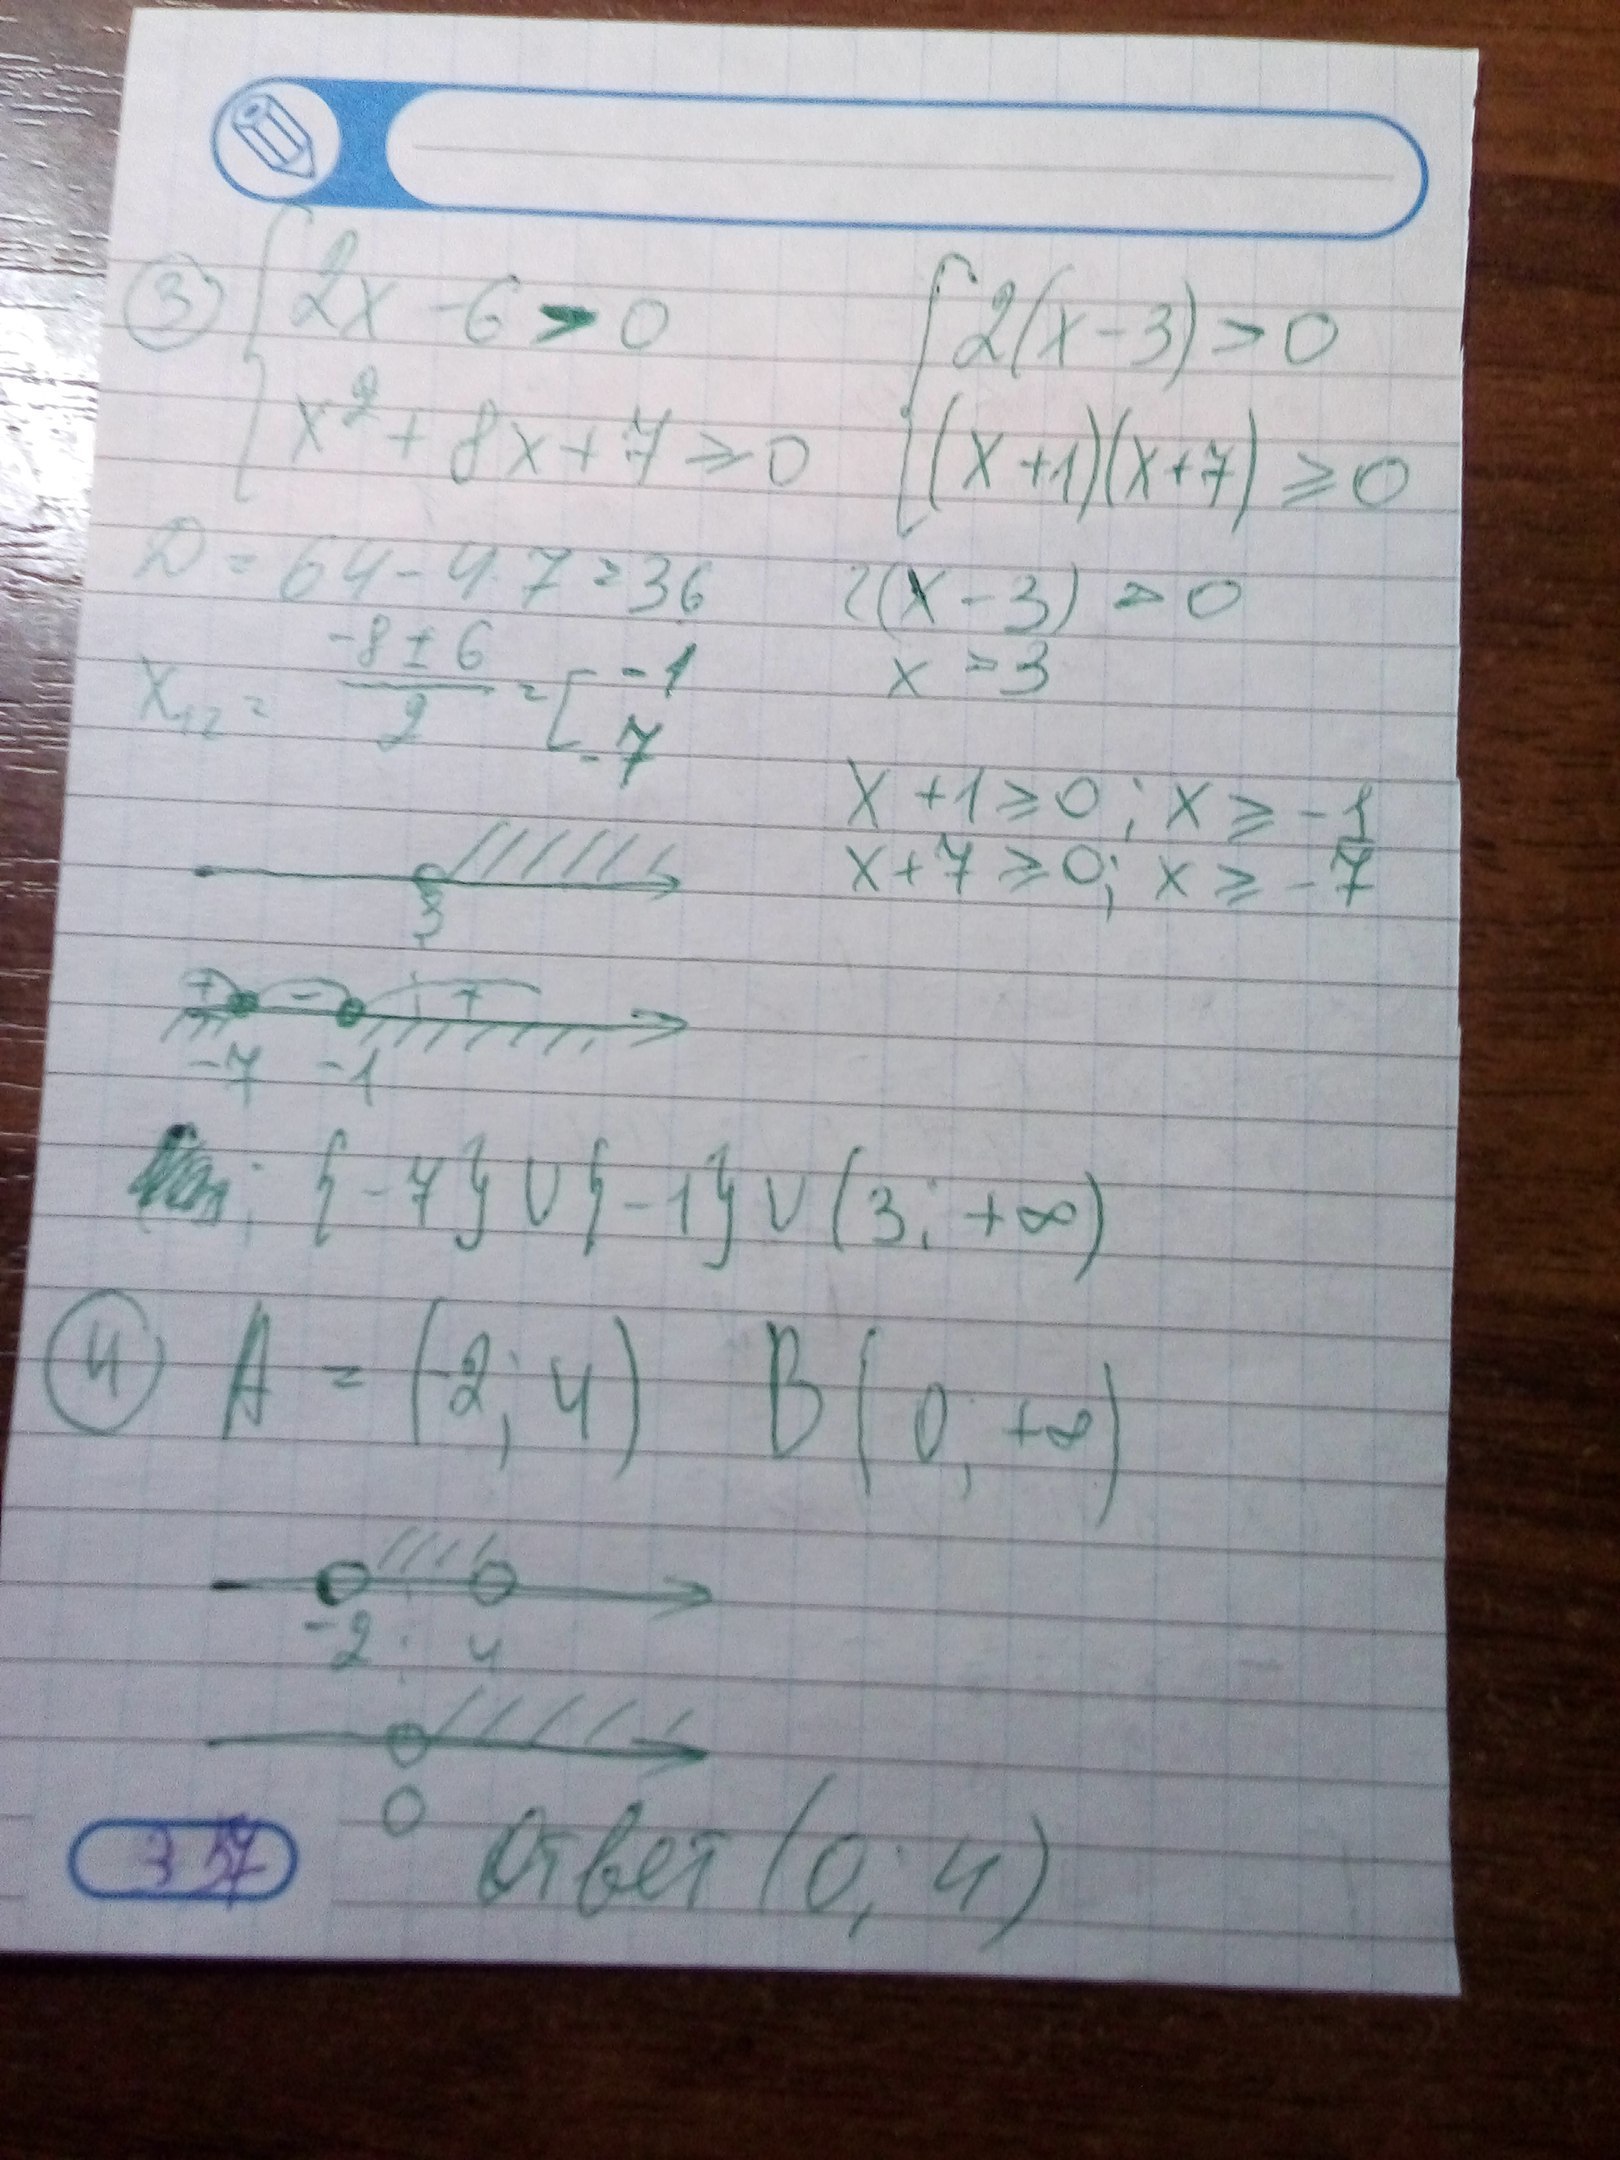 3 { 2x - 6 > 0
x² + 8x + 7 ⩾ 0
{ 2(x - 3) > 0
(x + 1)(x + 7) ⩾ 0
D = 64 - 4·7 = 36
x₁₂ = (-8 ± 6)/2 = [ -1
-7
2(x - 3) > 0
x > 3
x + 1 ⩾ 0; x ⩾ -1
x + 7 ⩾ 0; x ⩾ -7
3
+ - +
-7 -1
: {-7} ∪ {-1} ∪ (3; +∞)
4 A = (-2; 4) B (0; +∞)
-2 4
0
Ответ (0; 4)